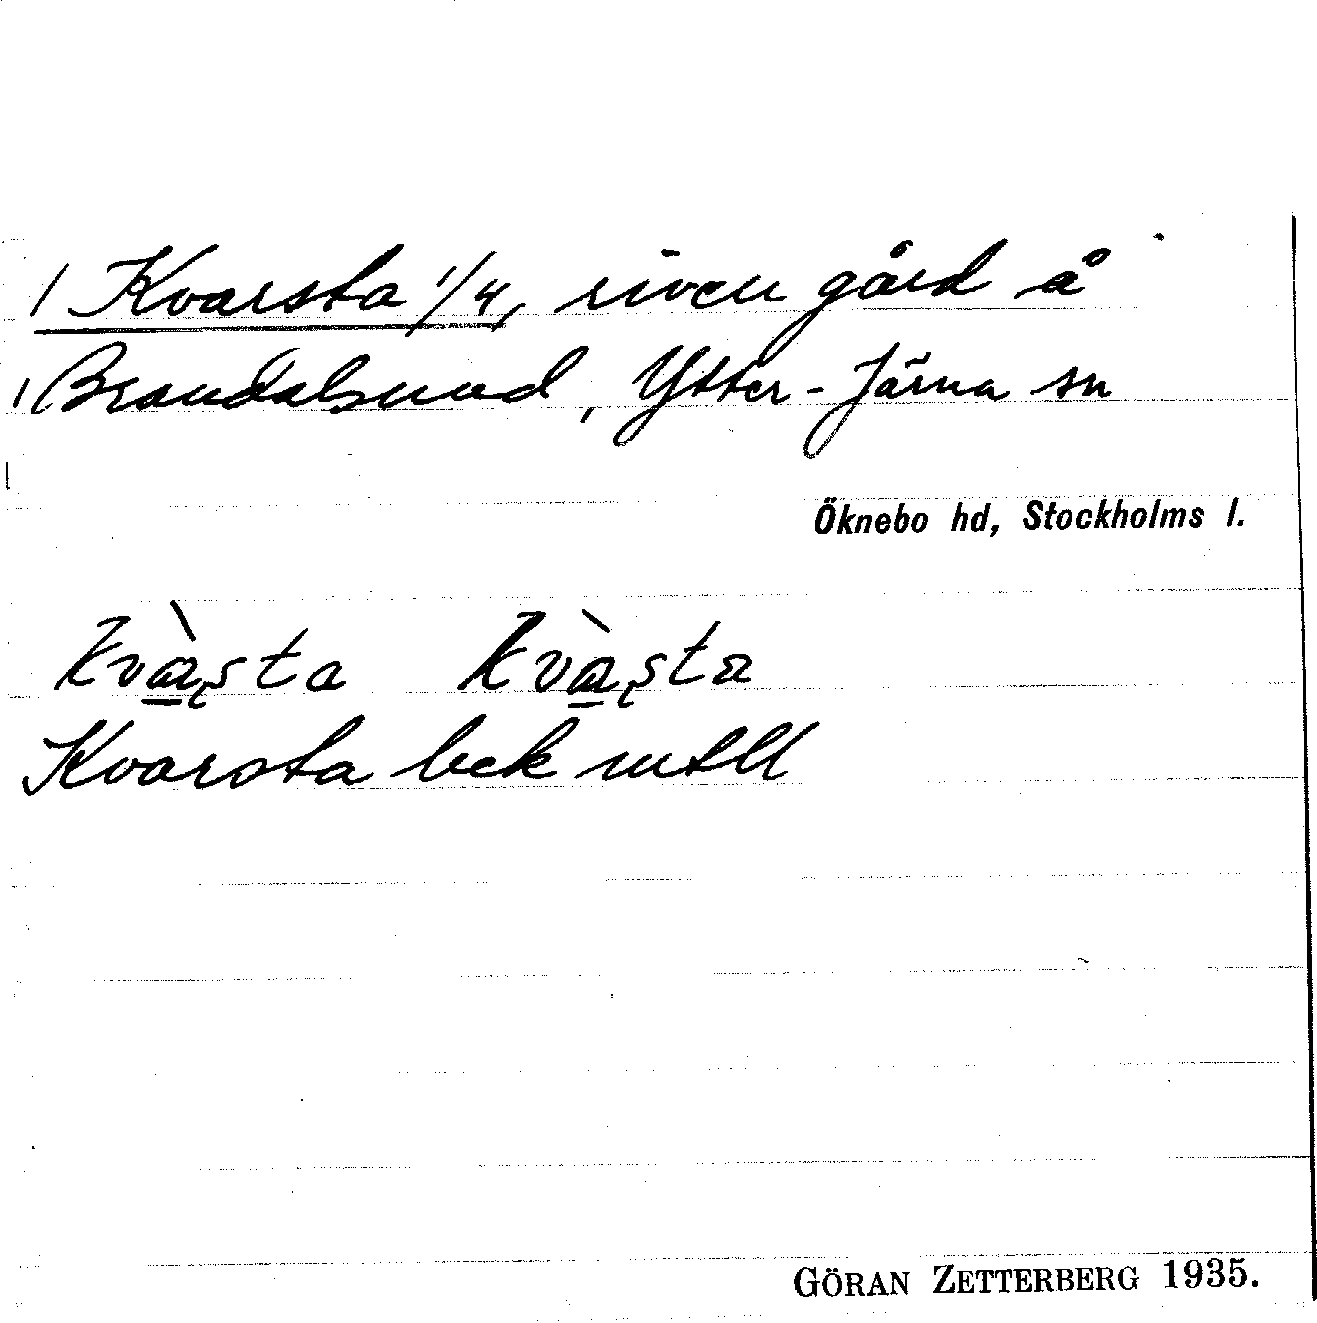 / Kvarsta 1/4, riven gård å
/ Brandalsund, Ytter-Järna sn
Öknebo hd, Stockholms l.
kvàʂta kvàʂta
Kvarsta bek mtll
GÖRAN ZETTERBERG 1935.